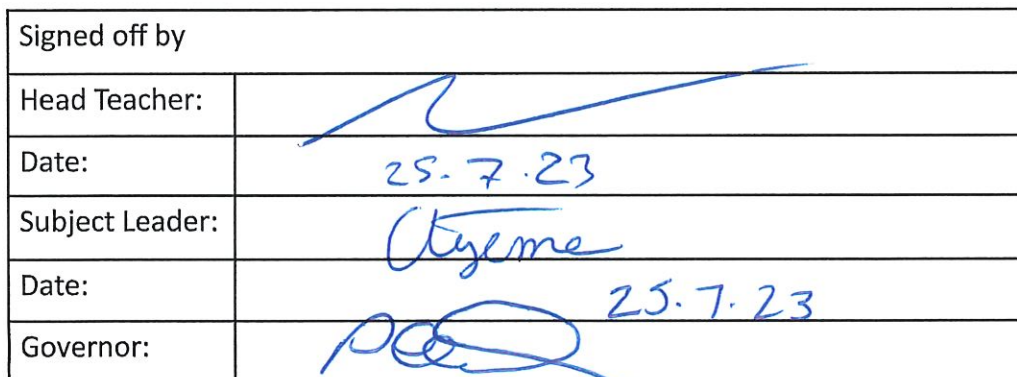 Signed off by
Head Teacher:
Date: 25.7.23
Subject Leader:
Date: 25.7.23
Governor: